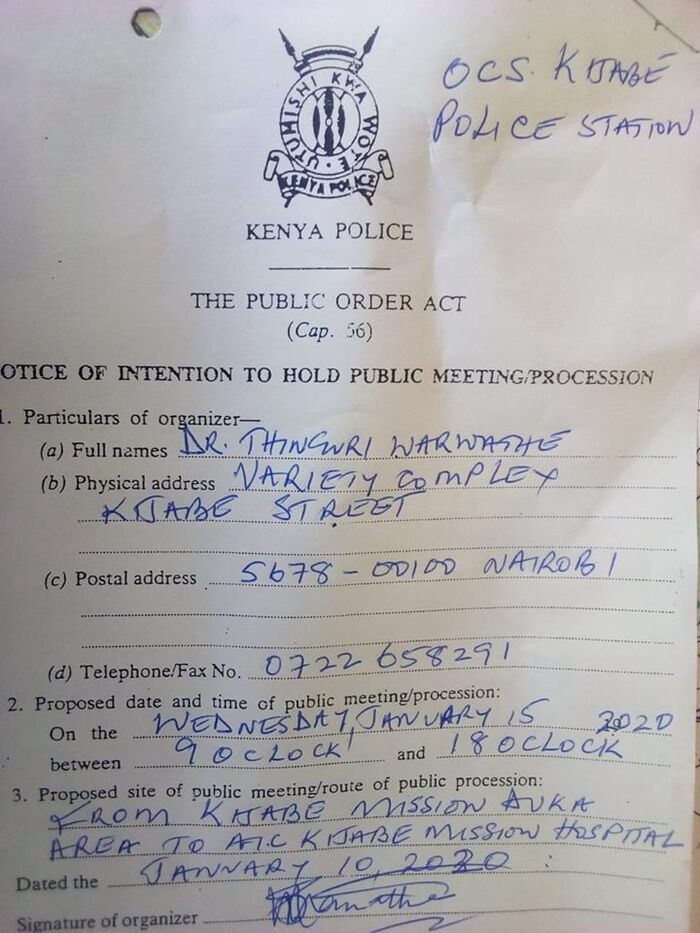 OCS. KIJABE
POLICE STATION
UTUMISHI KWA WOTE
KENYA POLICE
KENYA POLICE
THE PUBLIC ORDER ACT
(Cap. 56)
OTICE OF INTENTION TO HOLD PUBLIC MEETING/PROCESSION
1. Particulars of organizer—
(a) Full names DR. THINGURI WARWATHE
(b) Physical address VARIETY COMPLEX
KIJABE STREET
(c) Postal address 5678 – 00100 NAIROBI
(d) Telephone/Fax No. 0722 658291
2. Proposed date and time of public meeting/procession:
On the WEDNESDAY, JANUARY 15 2020
between 9 O CLOCK and 18 OCLOCK
3. Proposed site of public meeting/route of public procession:
FROM KIJABE MISSION AREA
AREA TO AIC KIJABE MISSION HOSPITAL
Dated the JANUARY 10, 2020
Signature of organizer